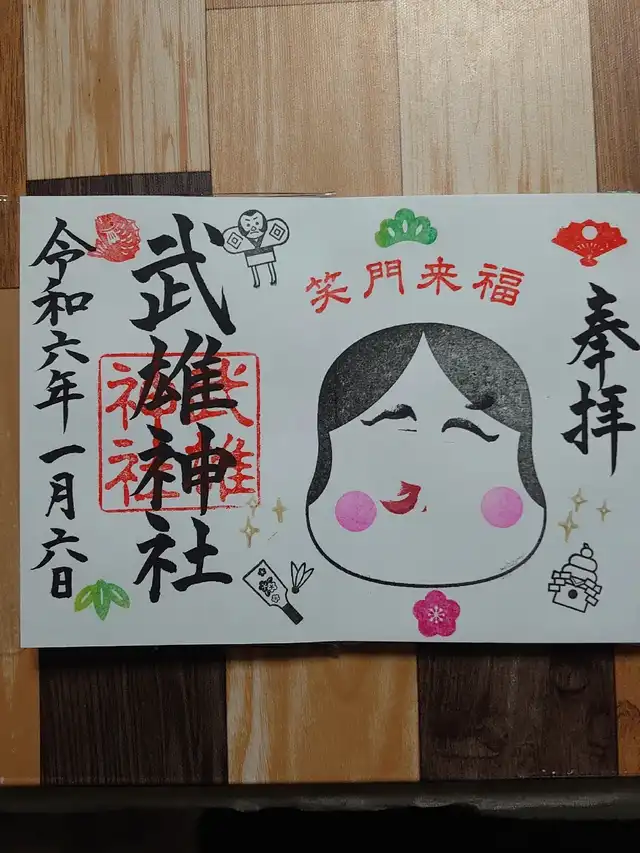 奉拝
笑門来福
武雄神社
武雄
神社
令和六年一月六日